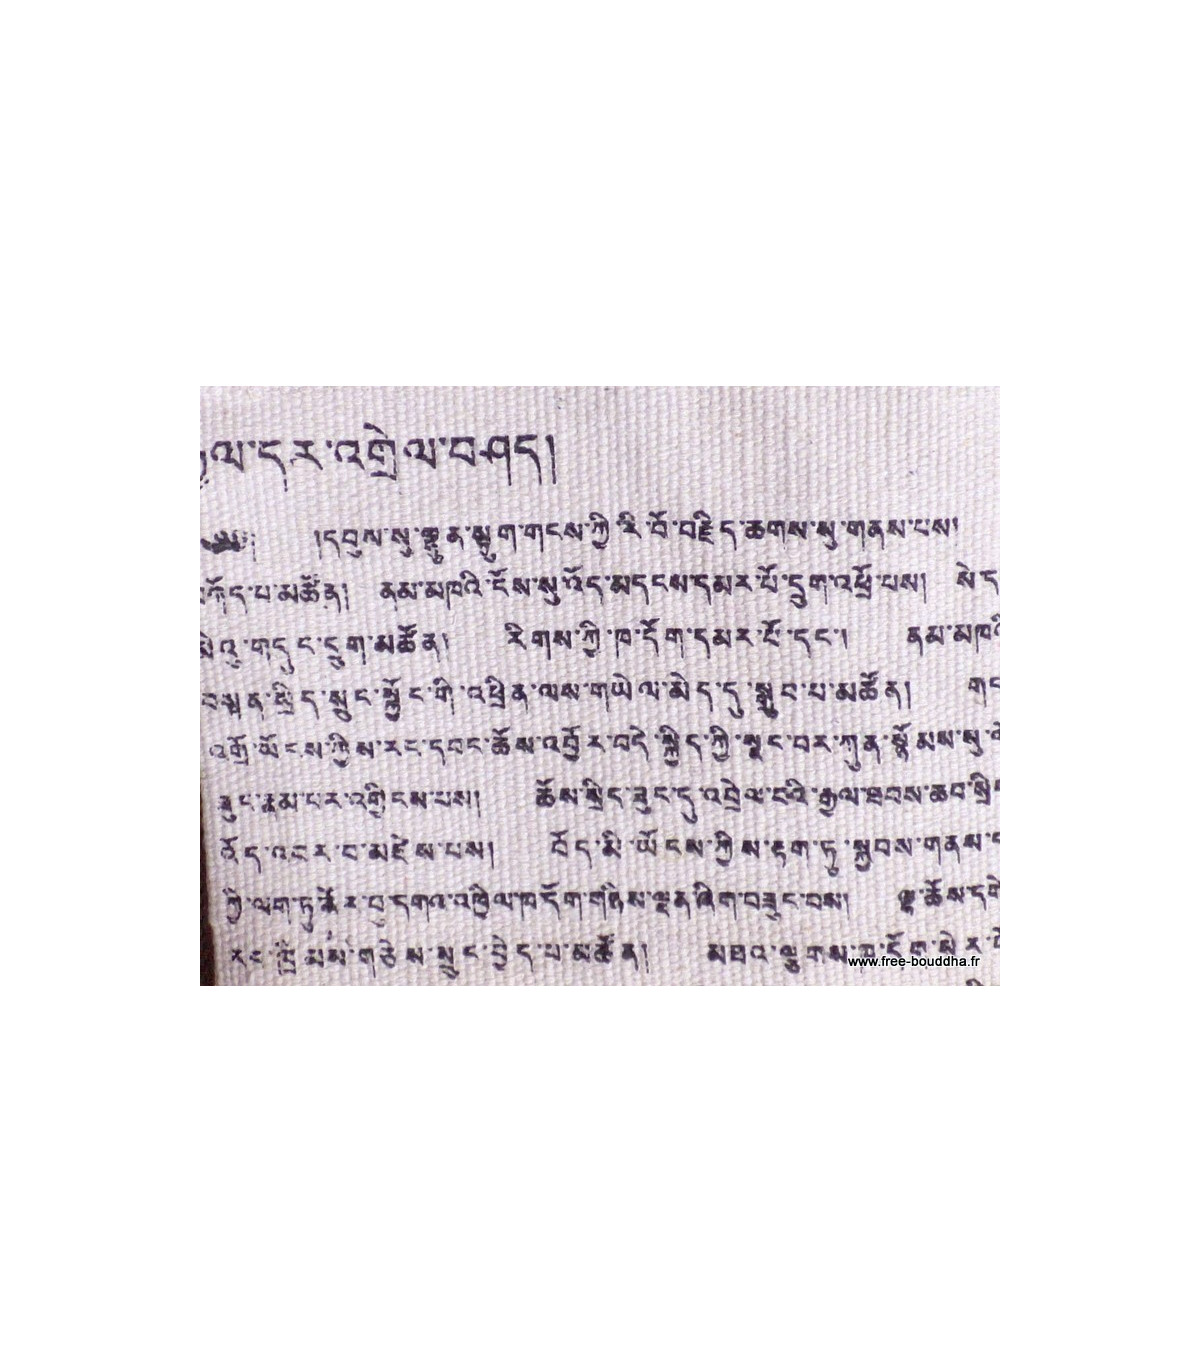 ལ་དར་འགྲེལ་བཤད།
།དབུས་སུ་ལྷུན་སྡུག་གངས་ཀྱི་རི་བོ་བརྗིད་ཆགས་སུ་གནས་པས།
བཀོད་པ་མཚོན། ནམ་མཁའི་ངོས་སུ་འོད་མདངས་དམར་པོ་དྲུག་འཕྲོ་པས། སེ་ད
མིའུ་གདུང་དྲུག་མཚོན། རིགས་ཀྱི་ཁ་དོག་དམར་པོ་དང་། ནམ་མཁའི
བསྟན་སྲིད་སྲུང་སྐྱོང་གི་འཕྲིན་ལས་གཡེལ་མེད་དུ་སྒྲུབ་པ་མཚོན། གང
འགྲོ་ཡོངས་ཀྱིས་རང་དབང་ཆོས་འབྱོར་བདེ་སྐྱིད་ཀྱི་སྣང་བར་ཀུན་སྙོམས་སུ་
ཟུང་རྣམ་པར་འགྱིངས་པས། ཆོས་སྲིད་ཟུང་དུ་འབྲེལ་བའི་རྒྱལ་ཐབས་ཆབ་སྲིད
འོད་འབར་བ་མཛེས་པས། བོད་མི་ཡོངས་ཀྱིས་རྟག་ཏུ་སྐྱབས་གནས་
ཀྱི་ལག་ཏུ་ནོར་བུ་དགའ་འཁྱིལ་ཁ་དོག་གཉིས་ལྡན་ཞིག་བཟུང་བས། ལྷ་ཆོས་དགེ
རང་ཁྲིམས་གཙེས་སྲུང་བྱེད་པ་མཚོན། མཐའ་ལྕགས་ཁ་དོག་སེར་པོ
www.free-bouddha.fr